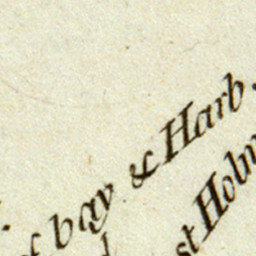 of bay & Harb.
st Holm